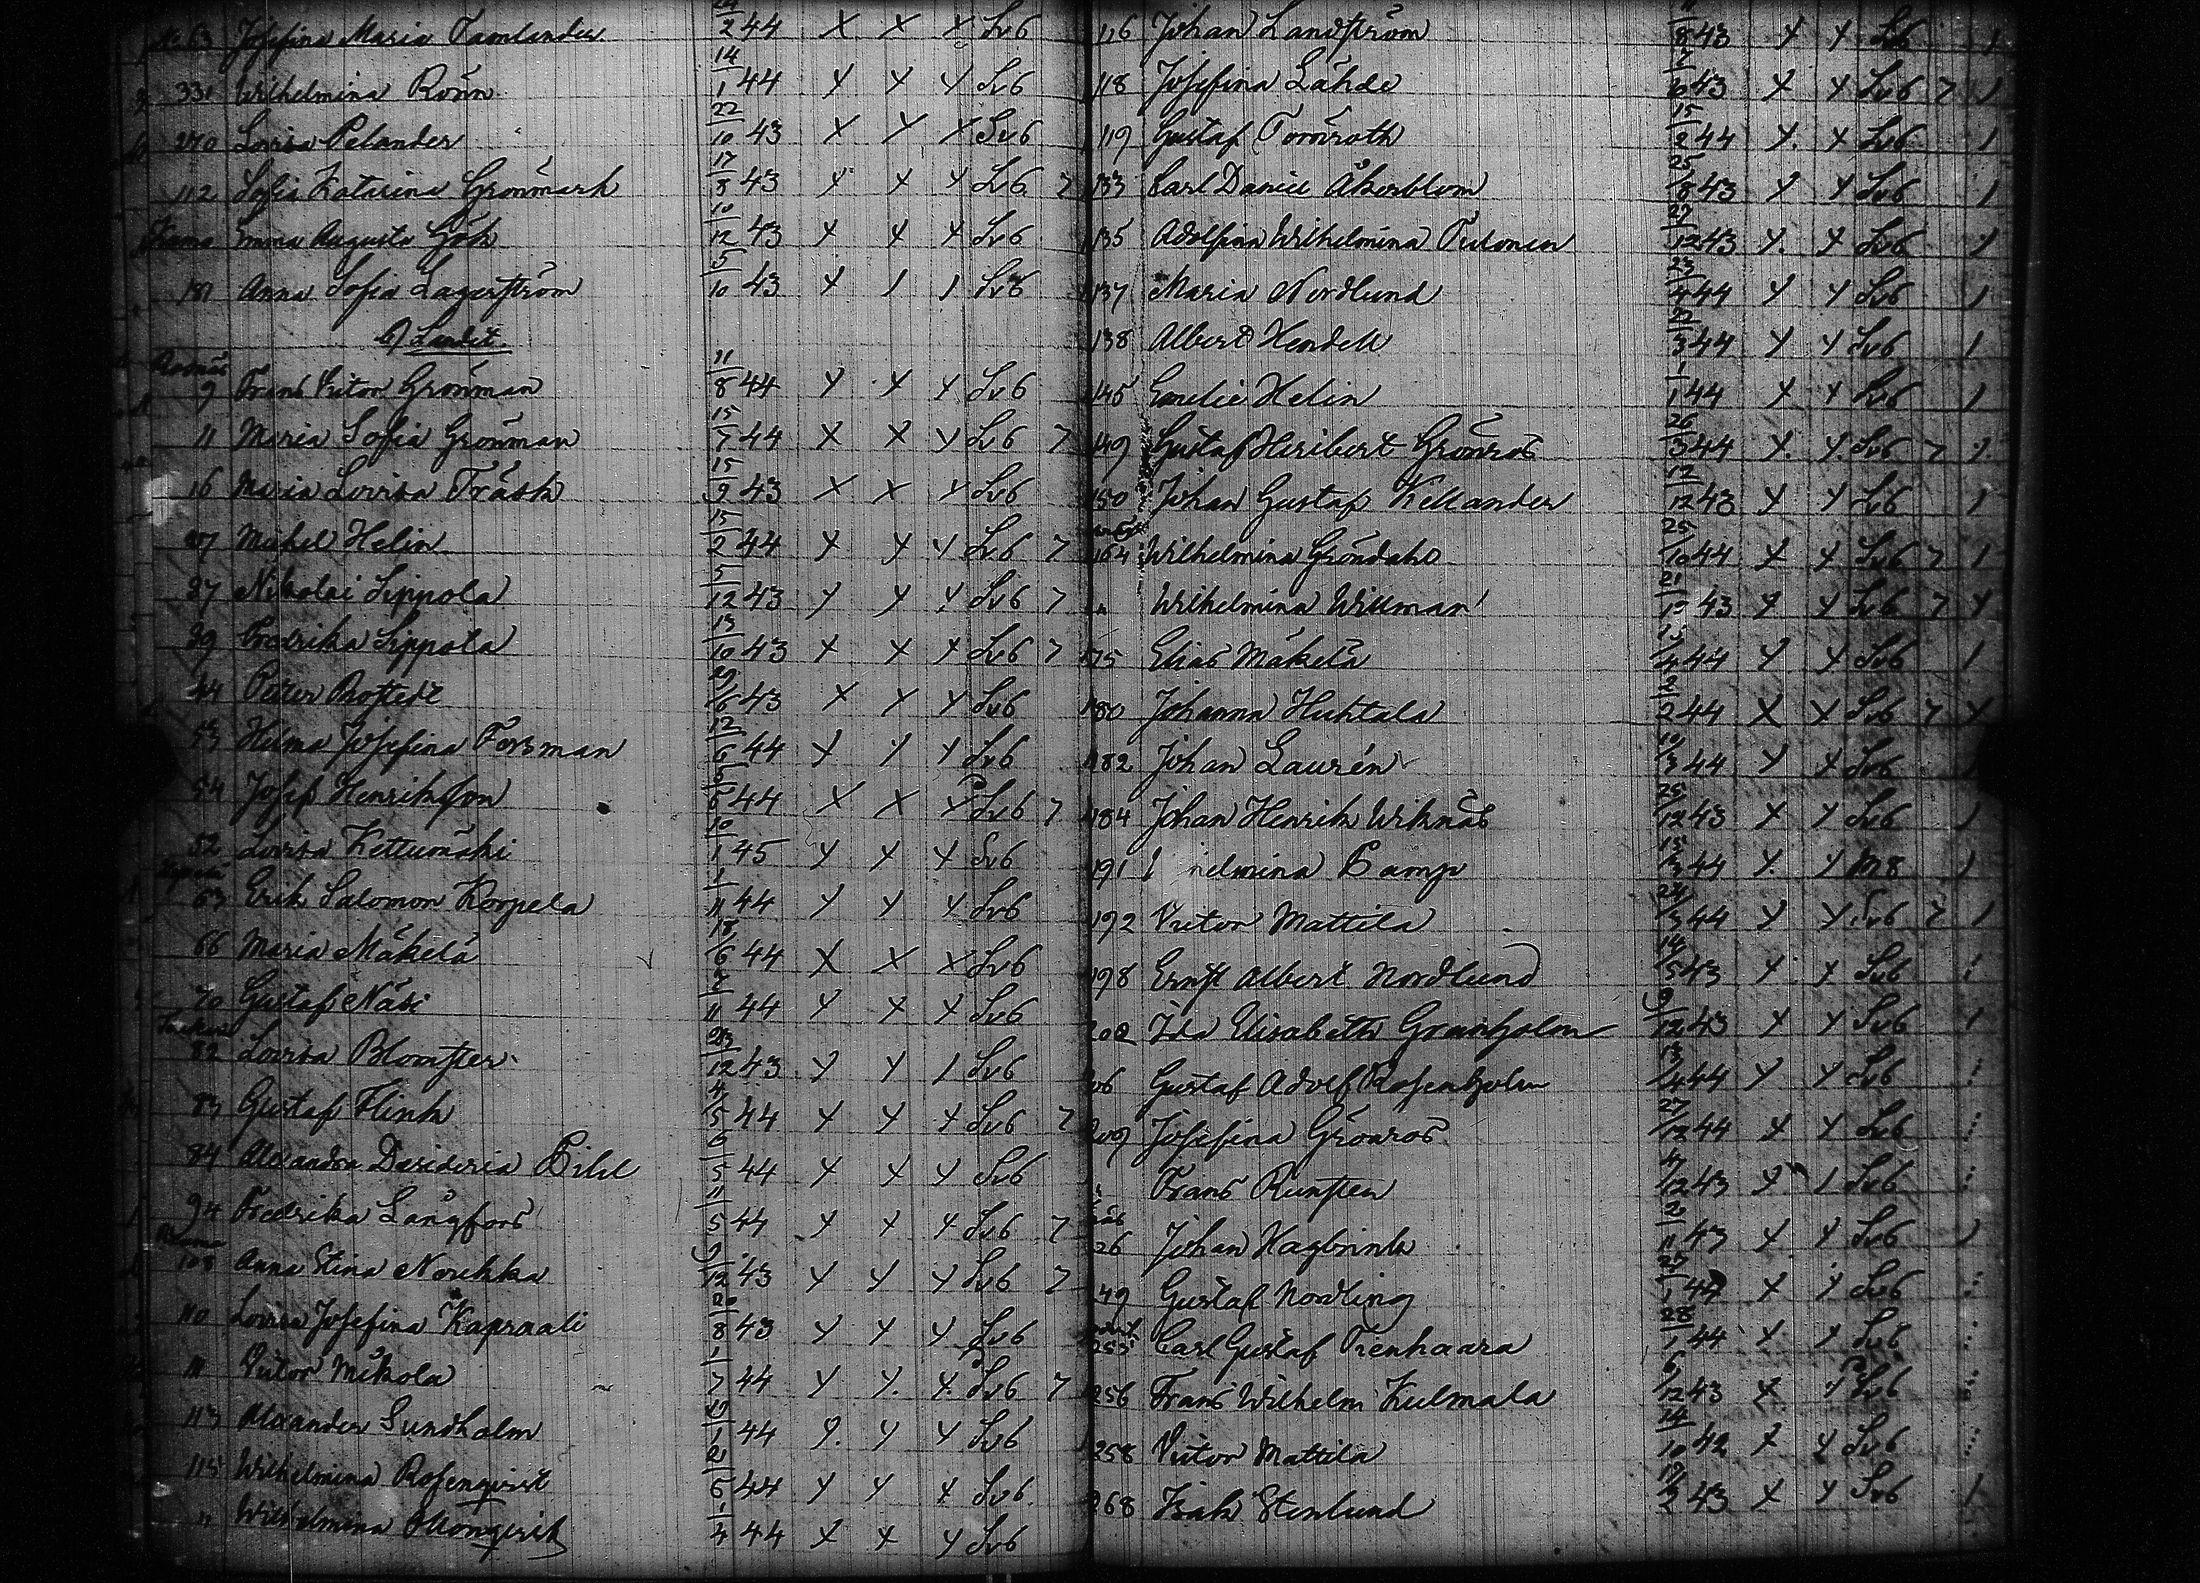 63 Josefina Maria Tamlander 24/2 44 X X X Sv6
331 Wilhelmina Rönn 14/1 44 X X X Sv6
270 Lovisa Pelander 22/10 43 X X X Sv6
112 Sofia Katarina Grönmark 17/8 43 X X X Sv6 7
Emma Augusta Göök 10/12 43 X X X Sv6
181 Anna Sofia Lagerström 5/10 43 X 1 1 Sv6
b) Landet
9 Frans Victor Grönman 11/8 44 X X X Sv6
11 Maria Sofia Grönman 15/7 44 X X X Sv6 7
16 Maria Lovisa Träsk 15/9 43 X X X Sv6
27 Mickel Helin 15/2 44 X X X Sv6 7
37 Nikolai Sippola 5/12 43 X X X Sv6 7
39 Fredrika Sippola 13/10 43 X X X Sv6 7
44 Petter Bostedt 29/6 43 X X X Sv6
53 Hilma Josefina Forsman 12/6 44 X X X Sv6
54 Josef Henriksson 6/6 44 X X X Sv6 7
52 Lovisa Kettumäki 10/1 45 X X X Sv6
63 Erik Salomon Korpela 1/11 44 X X X Sv6
66 Maria Mäkelä 18/6 44 X X X Sv6
70 Gustaf Näsi 2/11 44 X X X Sv6
82 Lovisa Blomster 23/12 43 X X 1 Sv6
83 Gustaf Flink 4/5 44 X X X Sv6 7
84 Alexandra Desideria Pihl 6/5 44 X X X Sv6
94 Fredrika Långfors 11/5 44 X X X Sv6 7
105 Anna Stina Norkka 9/12 43 X X X Sv6 7
110 Lovisa Josefina Kapraali 20/8 43 X X X Sv6
111 Victor Mikola 1/7 44 X X X Sv6 7
113 Alexander Sundholm 19/1 44 X X X Sv6
115 Wilhelmina Rosenqvist 21/6 44 X X X Sv6
" Wilhelmina Blomqvist 1/4 44 X X X Sv6
116 Johan Landström 11/8 43 X X Sv6 1
118 Josefina Lähde 7/6 43 X X Sv6 7 1
119 Gustaf Törnroth 15/2 44 X X Sv6 1
133 Carl Daniel Åkerblom 25/8 43 X X Sv6 1
135 Adolfina Wilhelmina Tulonen 27/12 43 X X Sv6 1
137 Maria Nordlund 23/4 44 X X Sv6 1
138 Albert Hendell 44 X X Sv6 1
145 Emelie Helin 1/1 44 X X Sv6 1
149 Gustaf Heribert Grönros 26/3 44 X X Sv6 7 X
150 Johan Gustaf Kellander 12/12 43 X X Sv6 1
164 Wilhelmina Gröndahl 25/10 44 X X Sv6 7 1
Wilhelmina Willman 21/12 43 X X Sv6 7 X
175 Elias Mäkelä 44 X X Sv6 1
180 Johanna Huhtala 2/2 44 X X Sv6 7 X
182 Johan Laurén 19/3 44 X X Sv6 1
184 Johan Henrik Wiknäs 25/12 43 X X Sv6 1
191 helmina Bamp 15/3 44 X X M8 1
192 Victor Mattila 24/3 44 X X Sv6 7 1
198 Ernst Albert Nordlund 14/5 43 X X Sv6
202 Ida Elisabeth Granholm 9/12 43 X X Sv6 1
206 Gustaf Adolf Rosenholm 13/4 44 X X Sv6
209 Josefina Grönros 27/12 44 X X Sv6
Frans Runsten 4/12 43 X 1 Sv6
26 Johan Hagbrink 2/11 43 X X Sv6 1
49 Gustaf Nordling 25/1 44 X X Sv6
253 Carl Gustaf Tienhaara 28/1 44 X X Sv6
256 Frans Wilhelm Kulmala 6/12 43 X X Sv6
258 Victor Mattila 14/10 42 X X Sv6
268 Isak Stenlund 19/2 43 X X Sv6 1